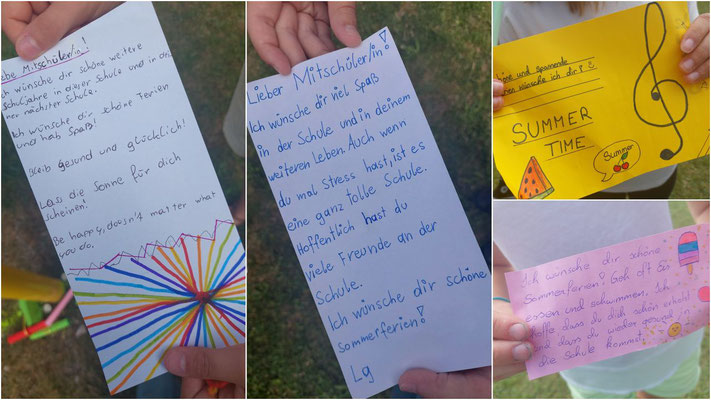 ebe Mitschüler/in!
ch wünsche dir schöne weitere
Schuljahre in dieser Schule und in dei
ner nächster Schule.
Ich wünsche dir schöne Ferien
und hab Spaß!
Bleib gesund und glücklich!
Lass die Sonne für dich
scheinen!
Be happy, dousn't matter what
you do.
Lieber Mitschüler/in!
Ich wünsche dir viel Spaß
in der Schule und in deinem
weiteren Leben. Auch wenn
du mal Stress hast, ist es
eine ganz tolle Schule.
Hoffentlich hast du
viele Freunde an der
Schule.
Ich wünsche dir schöne
sommerferien!
Lg
höne und spannende
wünsche ich dir!
SUMMER
TIME
Summer
Ich wünsche dir schöne
Sommerferien! Geh oft Eis
essen und schwimmen. Ich
hoffe, dass du dich schön erholst
und dass du wieder gesund in
die Schule kommst.